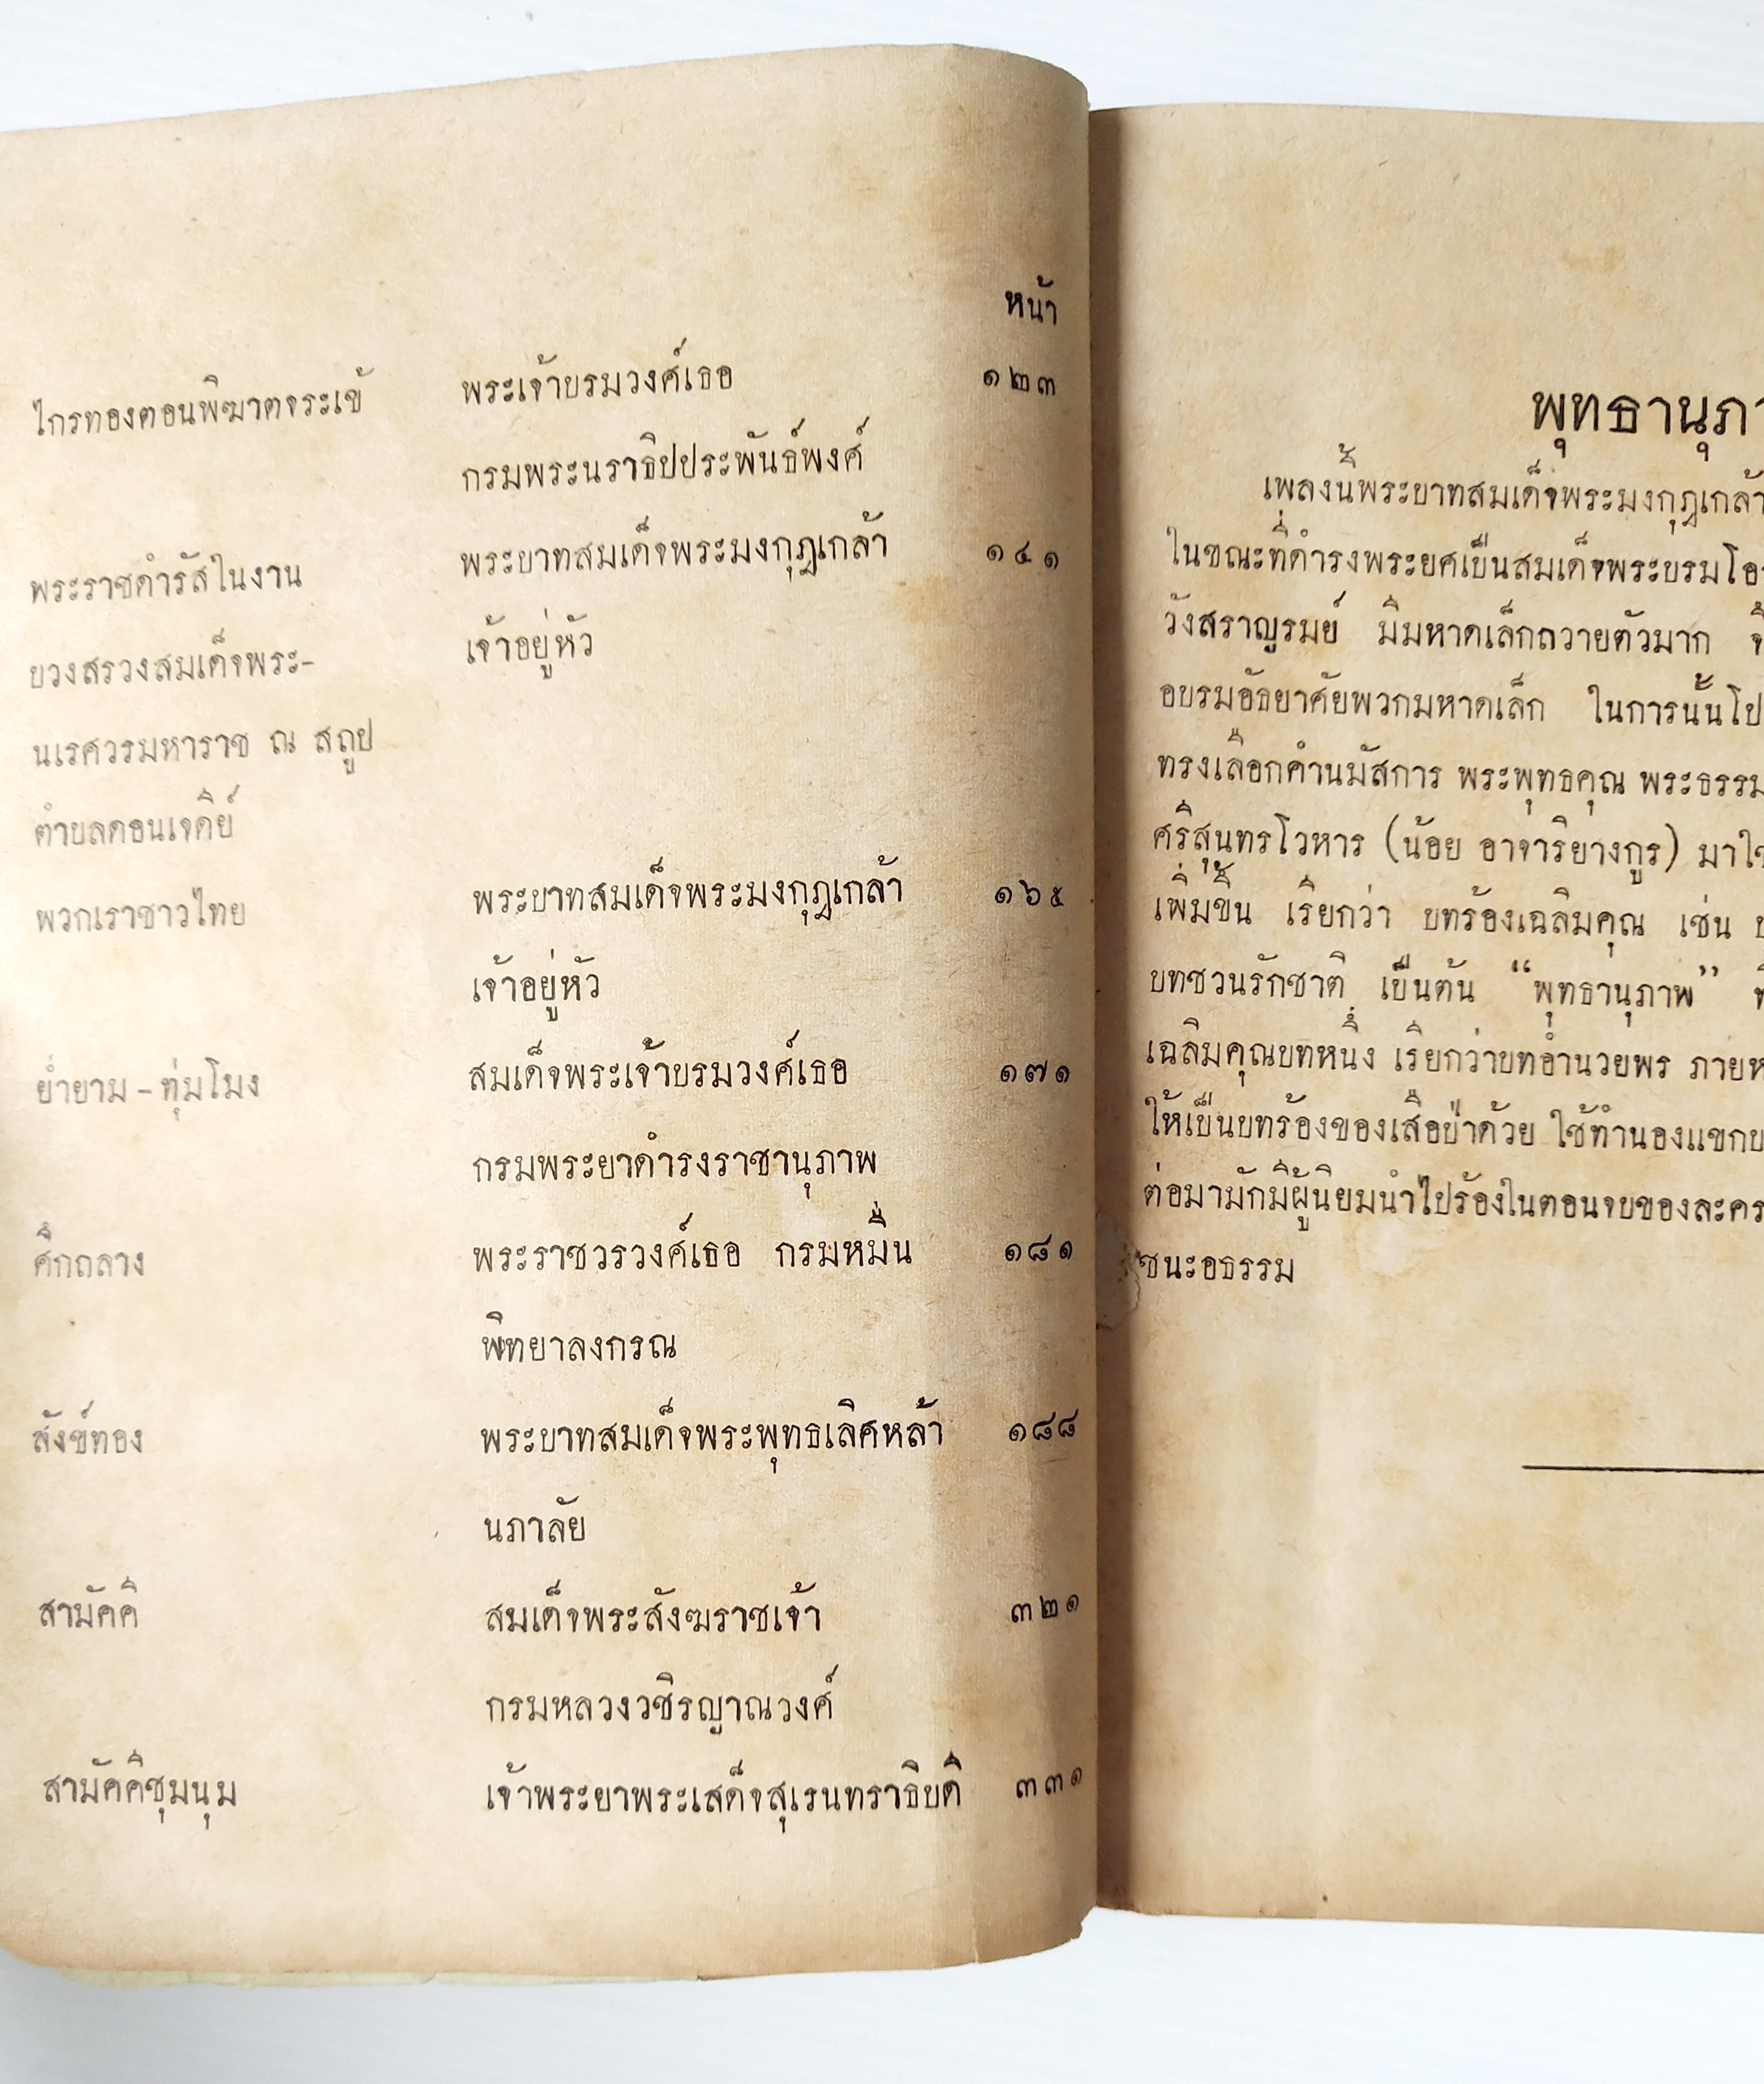 หน้า
ไกรทองตอนพิฆาตจระเข้ พระเจ้าบรมวงศ์เธอ ๑๒๓
กรมพระนราธิปประพันธ์พงศ์
พระราชดำรัสในงาน พระบาทสมเด็จพระมงกุฎเกล้า ๑๔๑
บวงสรวงสมเด็จพระ- เจ้าอยู่หัว
นเรศวรมหาราช ณ สถูป
ตำบลดอนเจดีย์
พวกเราชาวไทย พระบาทสมเด็จพระมงกุฎเกล้า ๑๖๕
เจ้าอยู่หัว
ย่ำยาม - ทุ่มโมง สมเด็จพระเจ้าบรมวงศ์เธอ ๑๗๑
กรมพระยาดำรงราชานุภาพ
ศึกถลาง พระราชวรวงศ์เธอ กรมหมื่น ๑๘๑
พิทยาลงกรณ
สังข์ทอง พระบาทสมเด็จพระพุทธเลิศหล้า ๑๘๘
นภาลัย
สามัคคี สมเด็จพระสังฆราชเจ้า ๓๒๑
กรมหลวงวชิรญาณวงศ์
สามัคคีชุมนุม เจ้าพระยาพระเสด็จสุเรนทราธิบดี ๓๓๑
พุทธานุภา
เพลงนี้พระบาทสมเด็จพระมงกุฎเกล้า
ในขณะที่ดำรงพระยศเป็นสมเด็จพระบรมโอ
วังสราญรมย์ มีมหาดเล็กถวายตัวมาก จึ
อบรมอัธยาศัยพวกมหาดเล็ก ในการนั้นโป
ทรงเลือกคำนมัสการ พระพุทธคุณ พระธรรม
ศรีสุนทรโวหาร (น้อย อาจาริยางกูร) มาใช
เพิ่มขึ้น เรียกว่า บทร้องเฉลิมคุณ เช่น บ
บทชวนรักชาติ เป็นต้น “พุทธานุภาพ” ที
เฉลิมคุณบทหนึ่ง เรียกว่าบทอำนวยพร ภายห
ให้เป็นบทร้องของเสือป่าด้วย ใช้ทำนองแขกบ
ต่อมามักมีผู้นิยมนำไปร้องในตอนจบของละคร
ชนะอธรรม